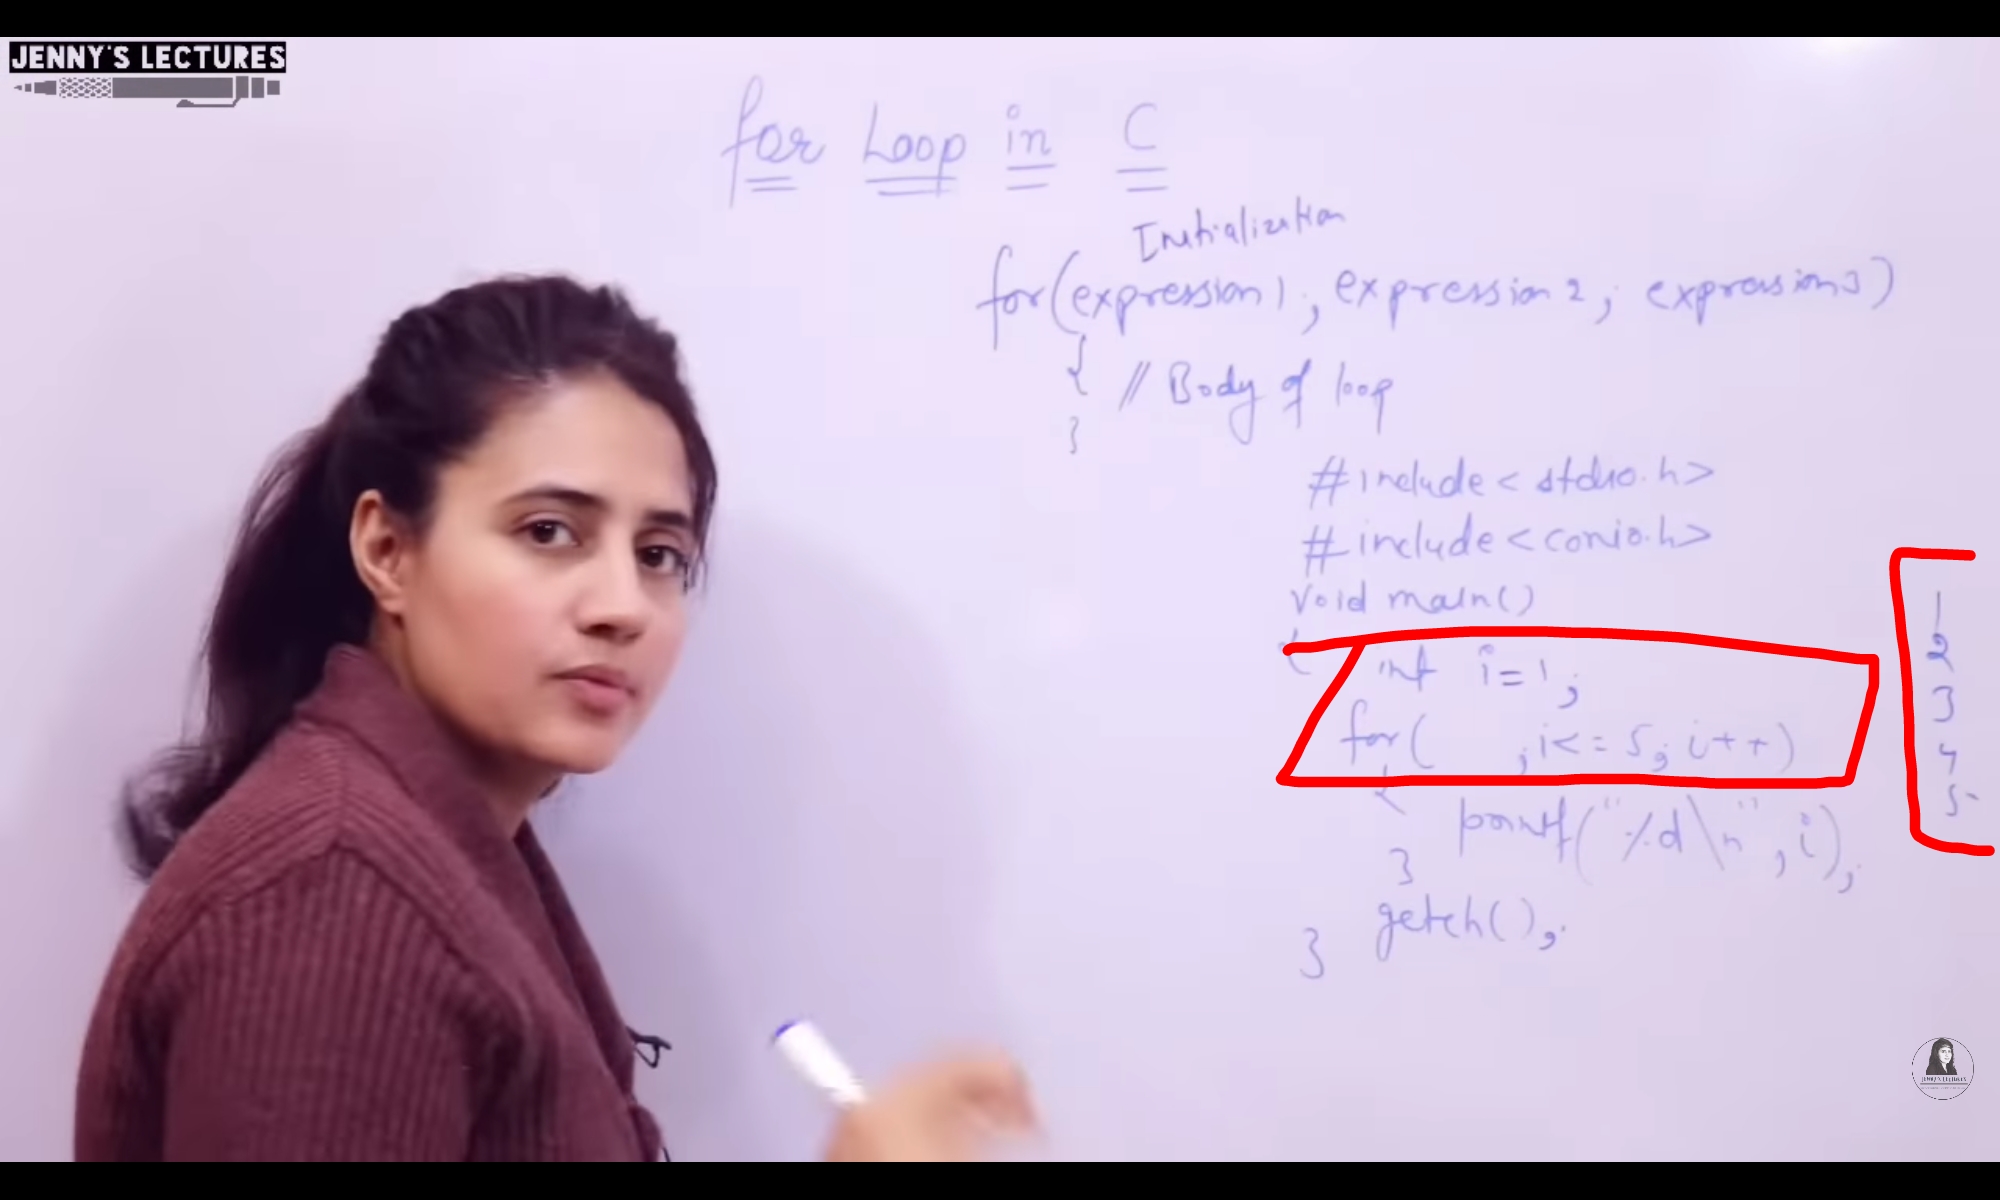 JENNY'S LECTURES
for Loop in C
Initialization
for(expression1; expression2; expression3)
{ // Body of loop
}
#include<stdio.h>
#include<conio.h>
void main()
{ int i=1;
for( ;i<=5; i++)
{
printf("%d\n", i);
}
getch();
}
1
2
3
4
5
JENNY'S LECTURES